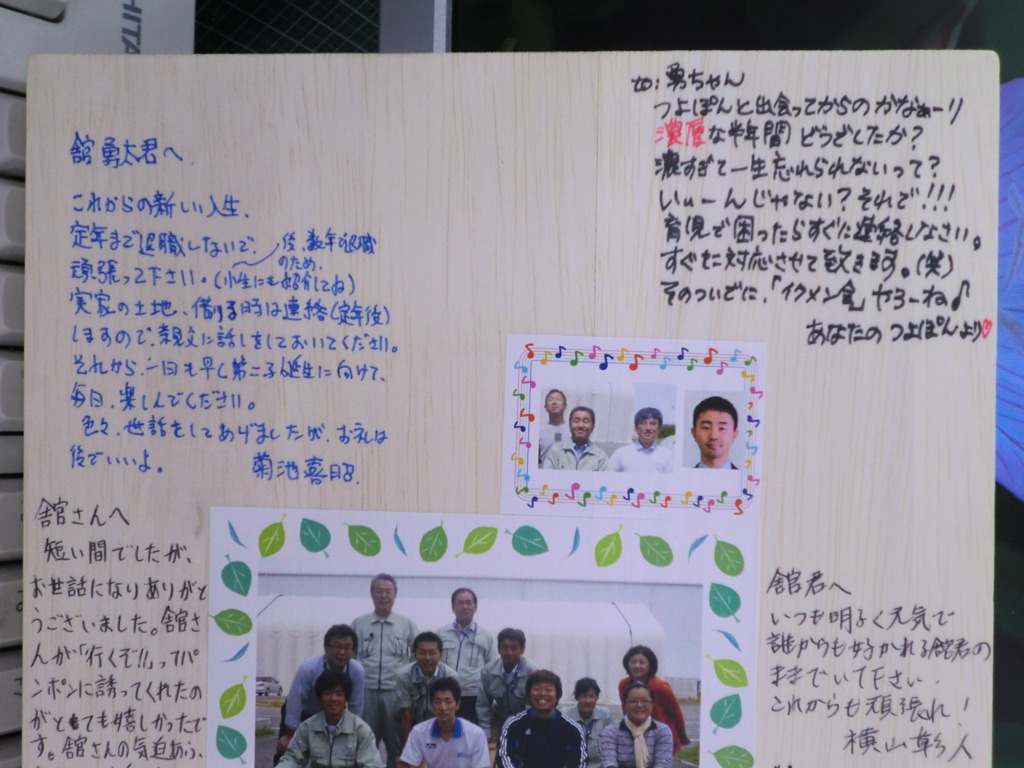 HITA
舘 勇太君へ
これからの新しい人生、
定年まで退職しないで、
後、数年で退職
のため、
頑張って下さい。(小生にも紹介してね)
実家の土地、借りる時は連絡(定年後)
しますので、親父に話しをしておいてください。
それから、一日も早く第二子誕生に向けて、
毎日、楽しんでください。
色々、世話をしてあげましたが、お礼は
後でいいよ。
菊池喜昭.
to:勇ちゃん
つよぽんと出会ってからのかなぁーり
濃厚な半年間どうでしたか?
濃すぎて一生忘れられないって?
いぃーんじゃない?それで!!!
育児で困ったらすぐに連絡しなさい。
すぐに対応させて致きます。(笑)
そのついでに、「イクメン会」やろーね♪
あなたの つよぽんより♡
舘さんへ
短い間でしたが、
お世話になりありがと
うございました。舘さ
んが「行くぞ!!」ってパ
ンポンに誘ってくれたの
がとても嬉しかったで
す。舘さんの気迫あふ
舘君へ
いつも明るく元気で
誰からも好かれる舘君の
ままでいて下さい.
これからも頑張れ!
横山彰人